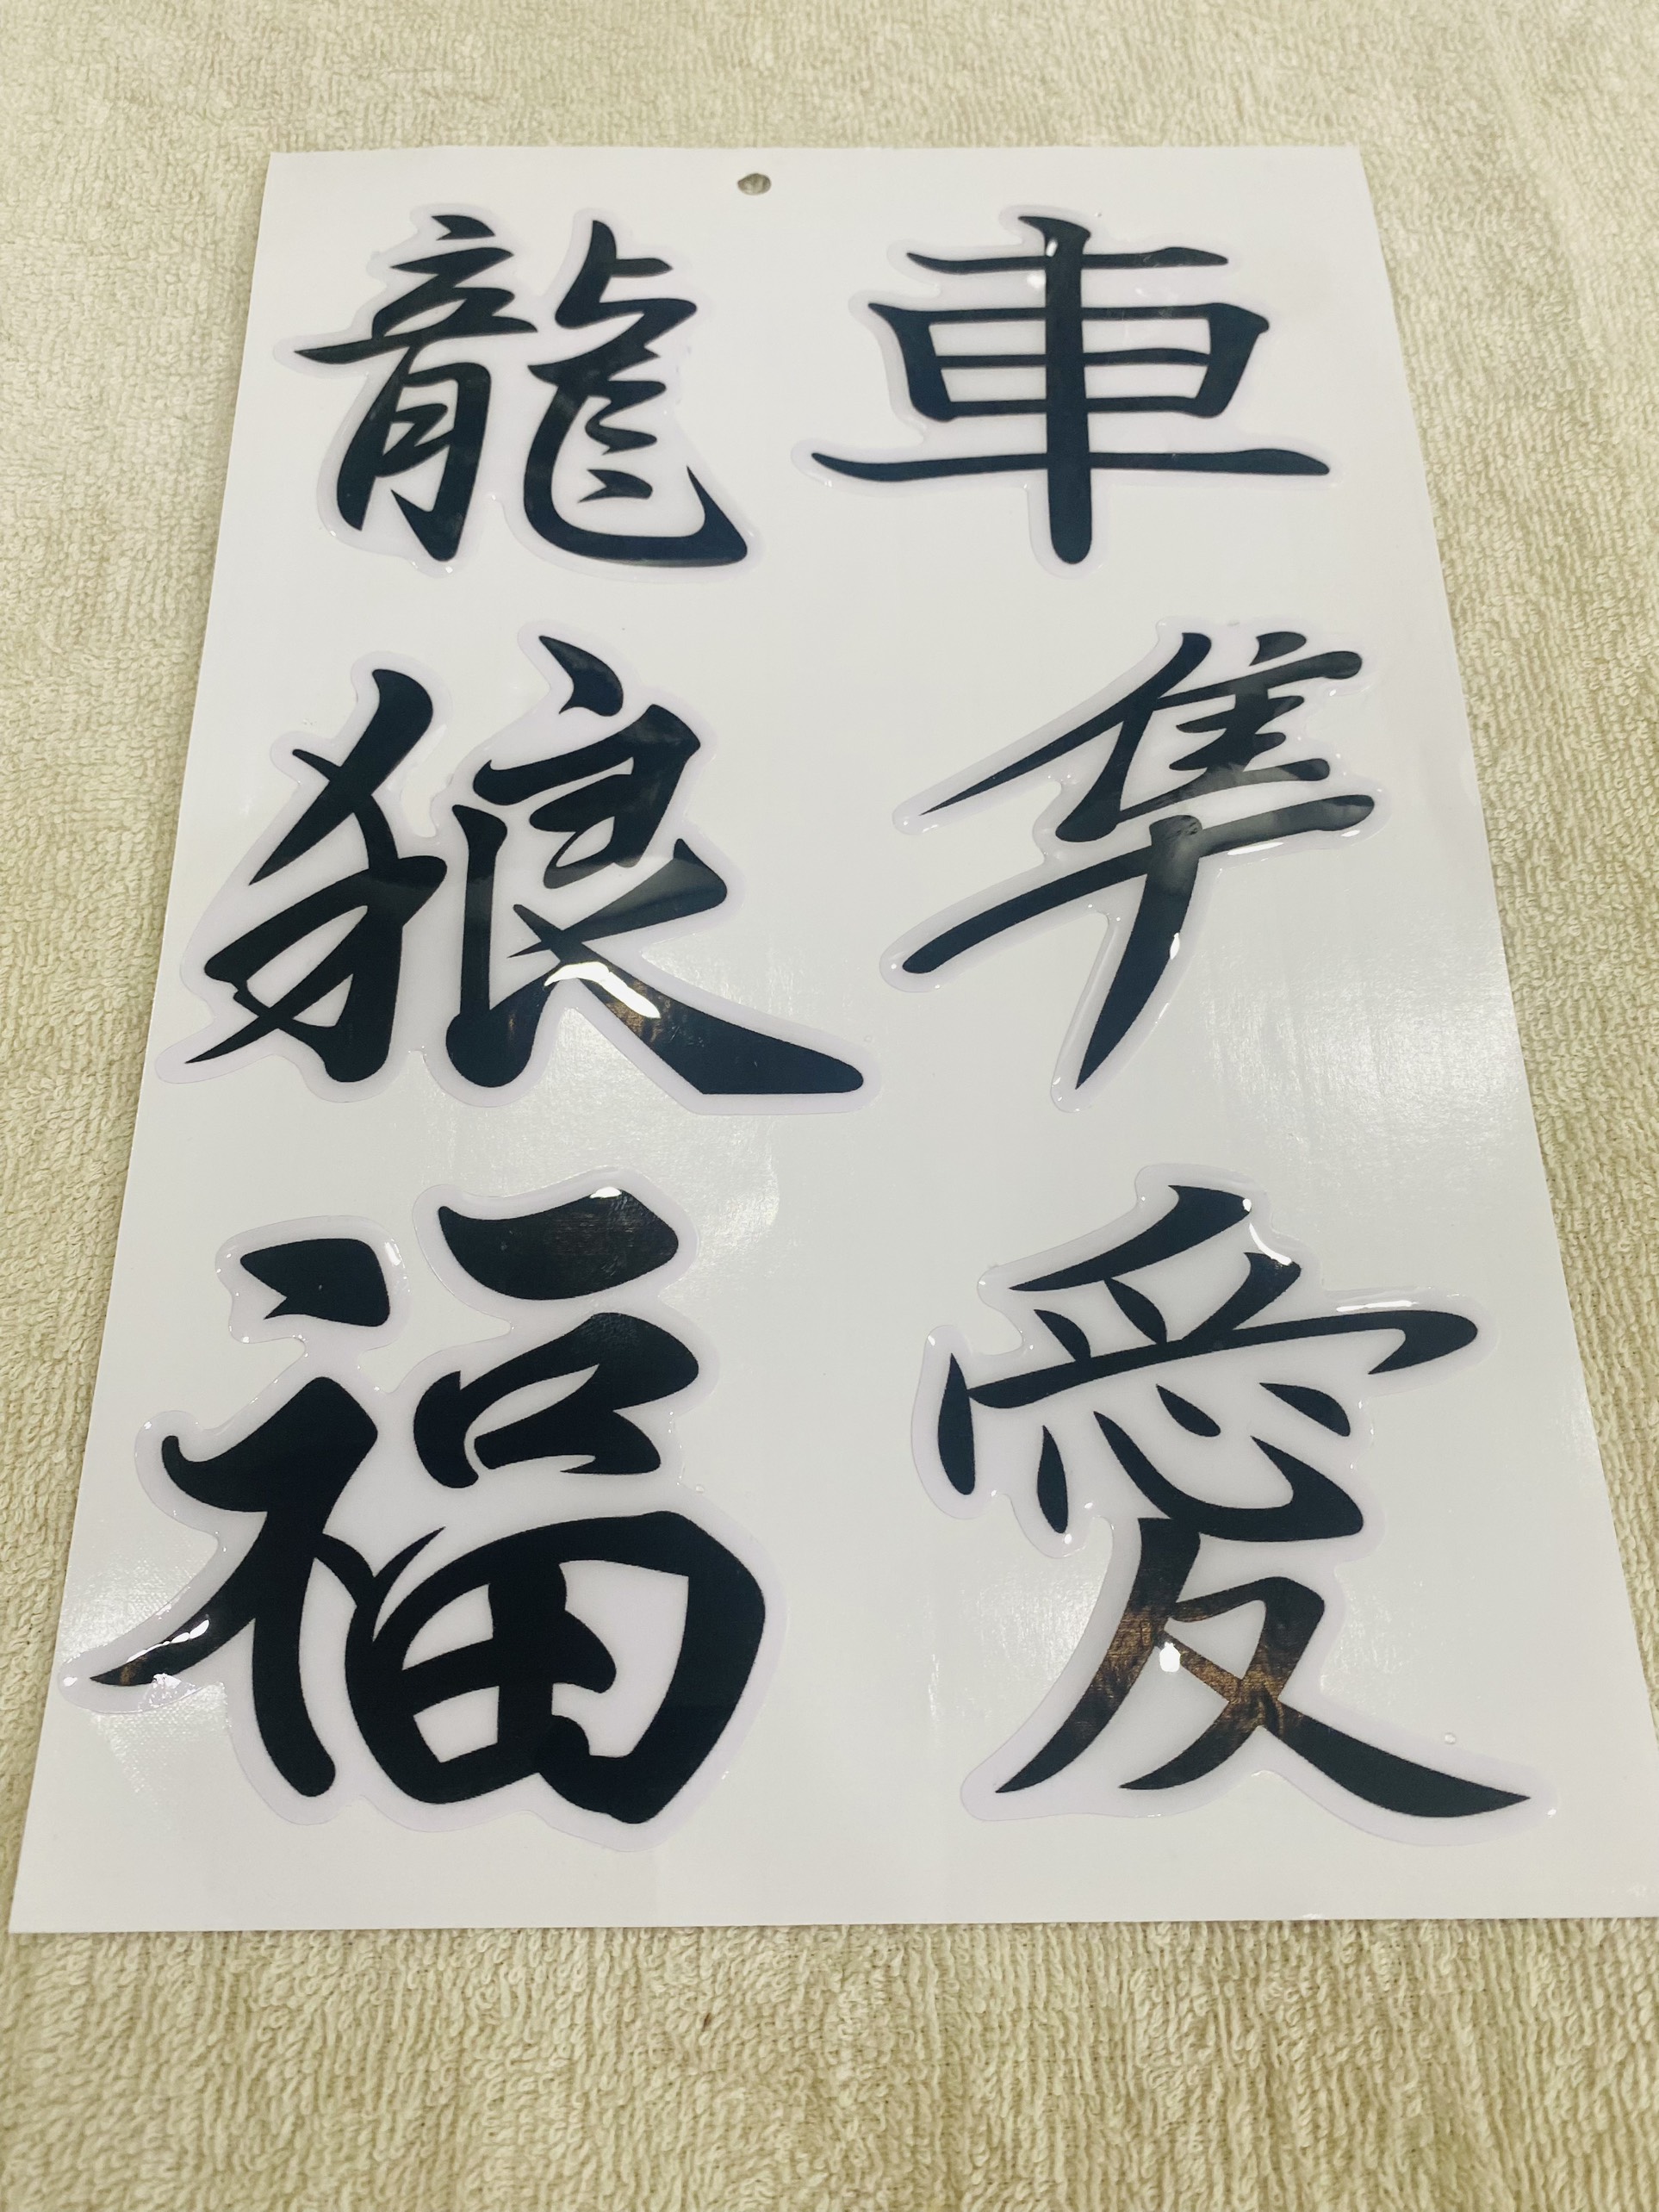 龍 車
狼 隼
福 愛